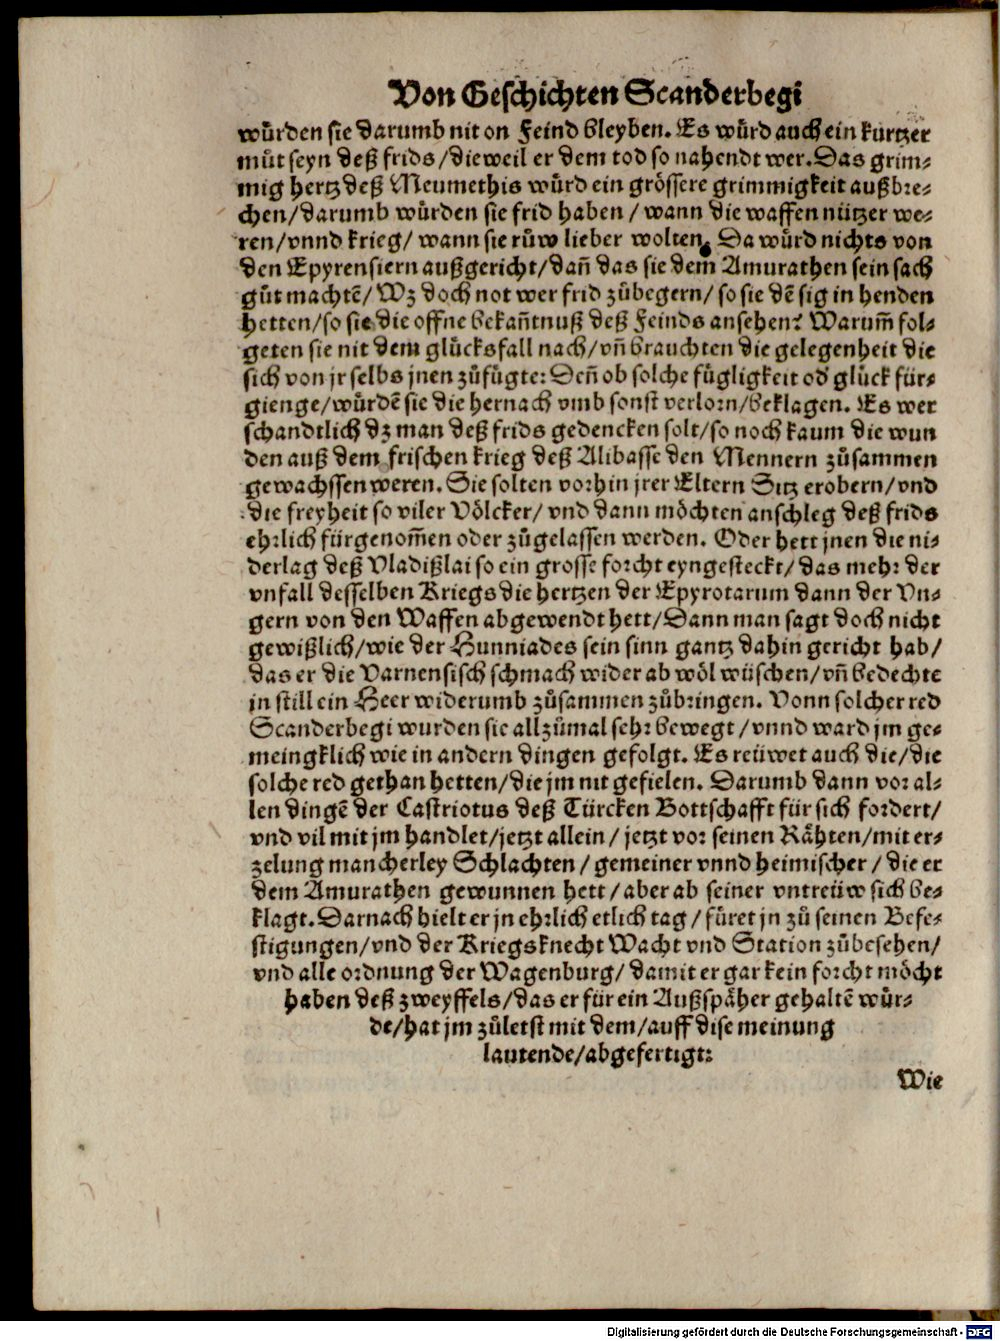 Von Geschichten Scanderbegi
würden sie darumb nit on Feind bleyben. Es würd auch ein kurtzer
můt seyn deß frids / dieweil er dem tod so nahendt wer. Das grim-
mig hertz deß Meumethis würd ein grössere grimmigkeit außbre-
chen / darumb würden sie frid haben / wann die waffen nützer we-
ren / vnnd krieg / wann sie růw lieber wolten. Da würd nichts von
den Epyrensiern außgericht / dañ das sie dem Amurathen sein sach
gůt machtē / Wz doch not wer frid zůbegern / so sie dē sig in henden
hetten / so sie die offne bekañtnuß deß Feinds ansehen? Warum̃ fol-
geten sie nit dem glücksfall nach / vñ brauchten die gelegenheit die
sich von jr selbs jnen zůfügte: Deñ ob solche fügligkeit od' glück für-
gienge / würdē sie die hernach vmb sonst verlorn / beklagen. Es wer
schandtlich dz man deß frids gedencken solt / so noch kaum die wun
den auß dem frischen krieg deß Alibasse den Mennern zůsammen
gewachssen weren. Sie solten vorhin jrer Eltern Sitz erobern / vnd
die freyheit so viler Völcker / vnd dann möchten anschleg deß frids
ehrlich fürgenom̃en oder zůgelassen werden. Oder hett jnen die ni-
derlag deß Vladißlai so ein grosse forcht eyngesteckt / das mehr der
vnfall desselben Kriegs die hertzen der Epyrotarum dann der Vn-
gern von den Waffen abgewendt hett / Dann man sagt doch nicht
gewißlich / wie der Hunniades sein sinn gantz dahin gericht hab /
das er die Varnensisch schmach wider ab wöl wüschen / vñ bedechte
in still ein Heer widerumb zůsammen zůbringen. Vonn solcher red
Scanderbegi wurden sie allzůmal sehr bewegt / vnnd ward jm ge-
meingklich wie in andern dingen gefolgt. Es reüwet auch die / die
solche red gethan hetten / die jm nit gefielen. Darumb dann vor al-
len dingē der Castriotus deß Türcken Bottschafft für sich fordert /
vnd vil mit jm handlet / jetzt allein / jetzt vor seinen Rähten / mit er-
zelung mancherley Schlachten / gemeiner vnnd heimischer / die er
dem Amurathen gewunnen hett / aber ab seiner vntreüw sich be-
klagt. Darnach hielt er jn ehrlich etlich tag / füret jn zů seinen Befe-
stigungen / vnd der Kriegsknecht Wacht vnd Station zůbesehen /
vnd alle ordnung der Wagenburg / damit er gar kein forcht möcht
haben deß zweyffels / das er für ein Außspäher gehaltē wür-
de / hat jm zůletst mit dem / auff dise meinung
lautende / abgefertigt:
Wie
Digitalisierung gefördert durch die Deutsche Forschungsgemeinschaft - DFG